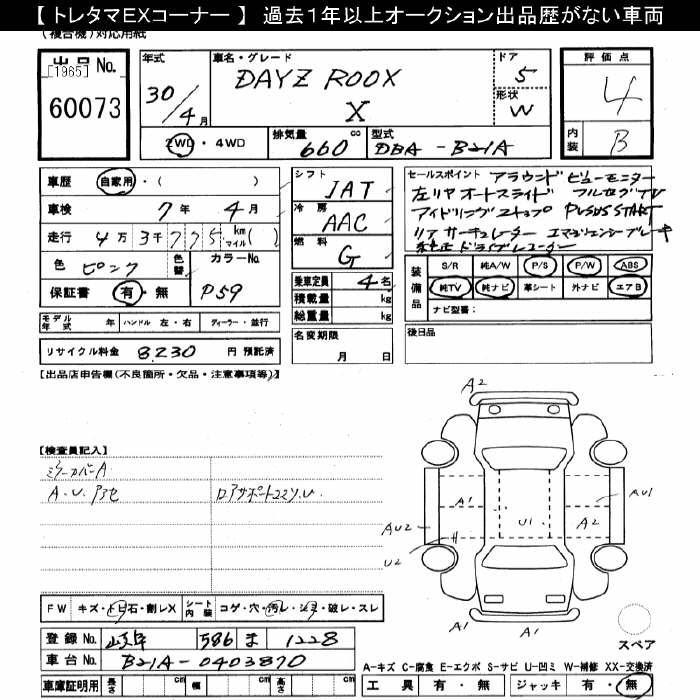 【 トレタマEXコーナー 】 過去1年以上オークション出品歴がない車両
(複合機)対応用紙
出品 No.
[1965]
60073
年式
30/4 月
車名・グレード
DAYZ ROOX
X
ドア
5
形状
W
評価点
4
内装
B
2WD・4WD
排気量
660 cc
型式
DBA-B21A
車歴 自家用・( )
車検 7年 4月
走行 4万 3千 775 km マイル( )
色 ピンク
色替
カラーNo.
P59
保証書 有・無
モデル年式 年 ハンドル 左・右 ディーラー・並行
リサイクル料金 8230 円 預託済
シフト
IAT
冷房
AAC
燃料
G
乗車定員 4名
積載量 kg
総重量 kg
名変期限
月 日
セールスポイント アラウンドビューモニター
左リヤオートスライド フルセグTV
アイドリングストップ PUSHSTART
リアサーキュレーター エマージェンシーブレーキ
純正ドライブレコーダー
装備品
S/R 純A/W P/S P/W ABS
純TV 純ナビ 革シート 外ナビ エアB
ナビ型番:
後日品
【出品店申告欄(不良箇所・欠品・注意事項等)】
【検査員記入】
ミラーカバーA
A.U.アセ
ロアサポート22ソ.U
A2
A1
AU1
AU2
U1
A2
U2
A1
A1
スペア
FW キズ・トビ石・割レX シート内装 コゲ・穴・汚レ・シミ・破レ・スレ
登録 No. 岐阜 586 ま 1228
車台 No. B21A-0403870
車庫証明用 長さ cm 幅 cm 高さ cm
A-キズ C-腐食 E-エクボ S-サビ U-凹ミ W-補修 XX-交換済
工具 有・無 ジャッキ 有・無